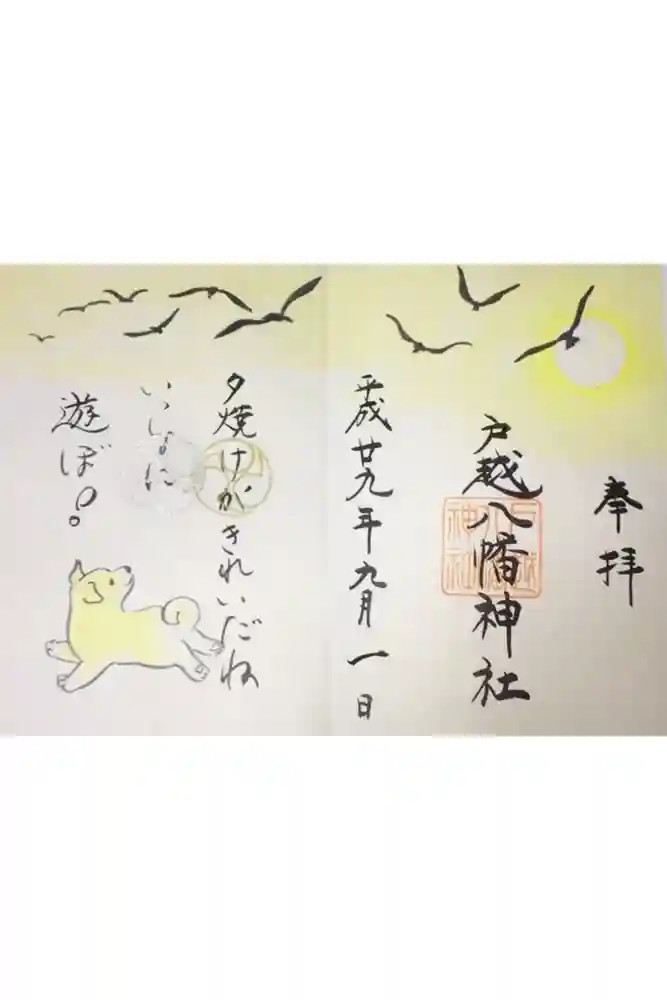 奉拝
戸越八幡神社
戸越八幡神社
平成廿九年九月一日
夕焼けがきれいだね
いっしょに
遊ぼ!